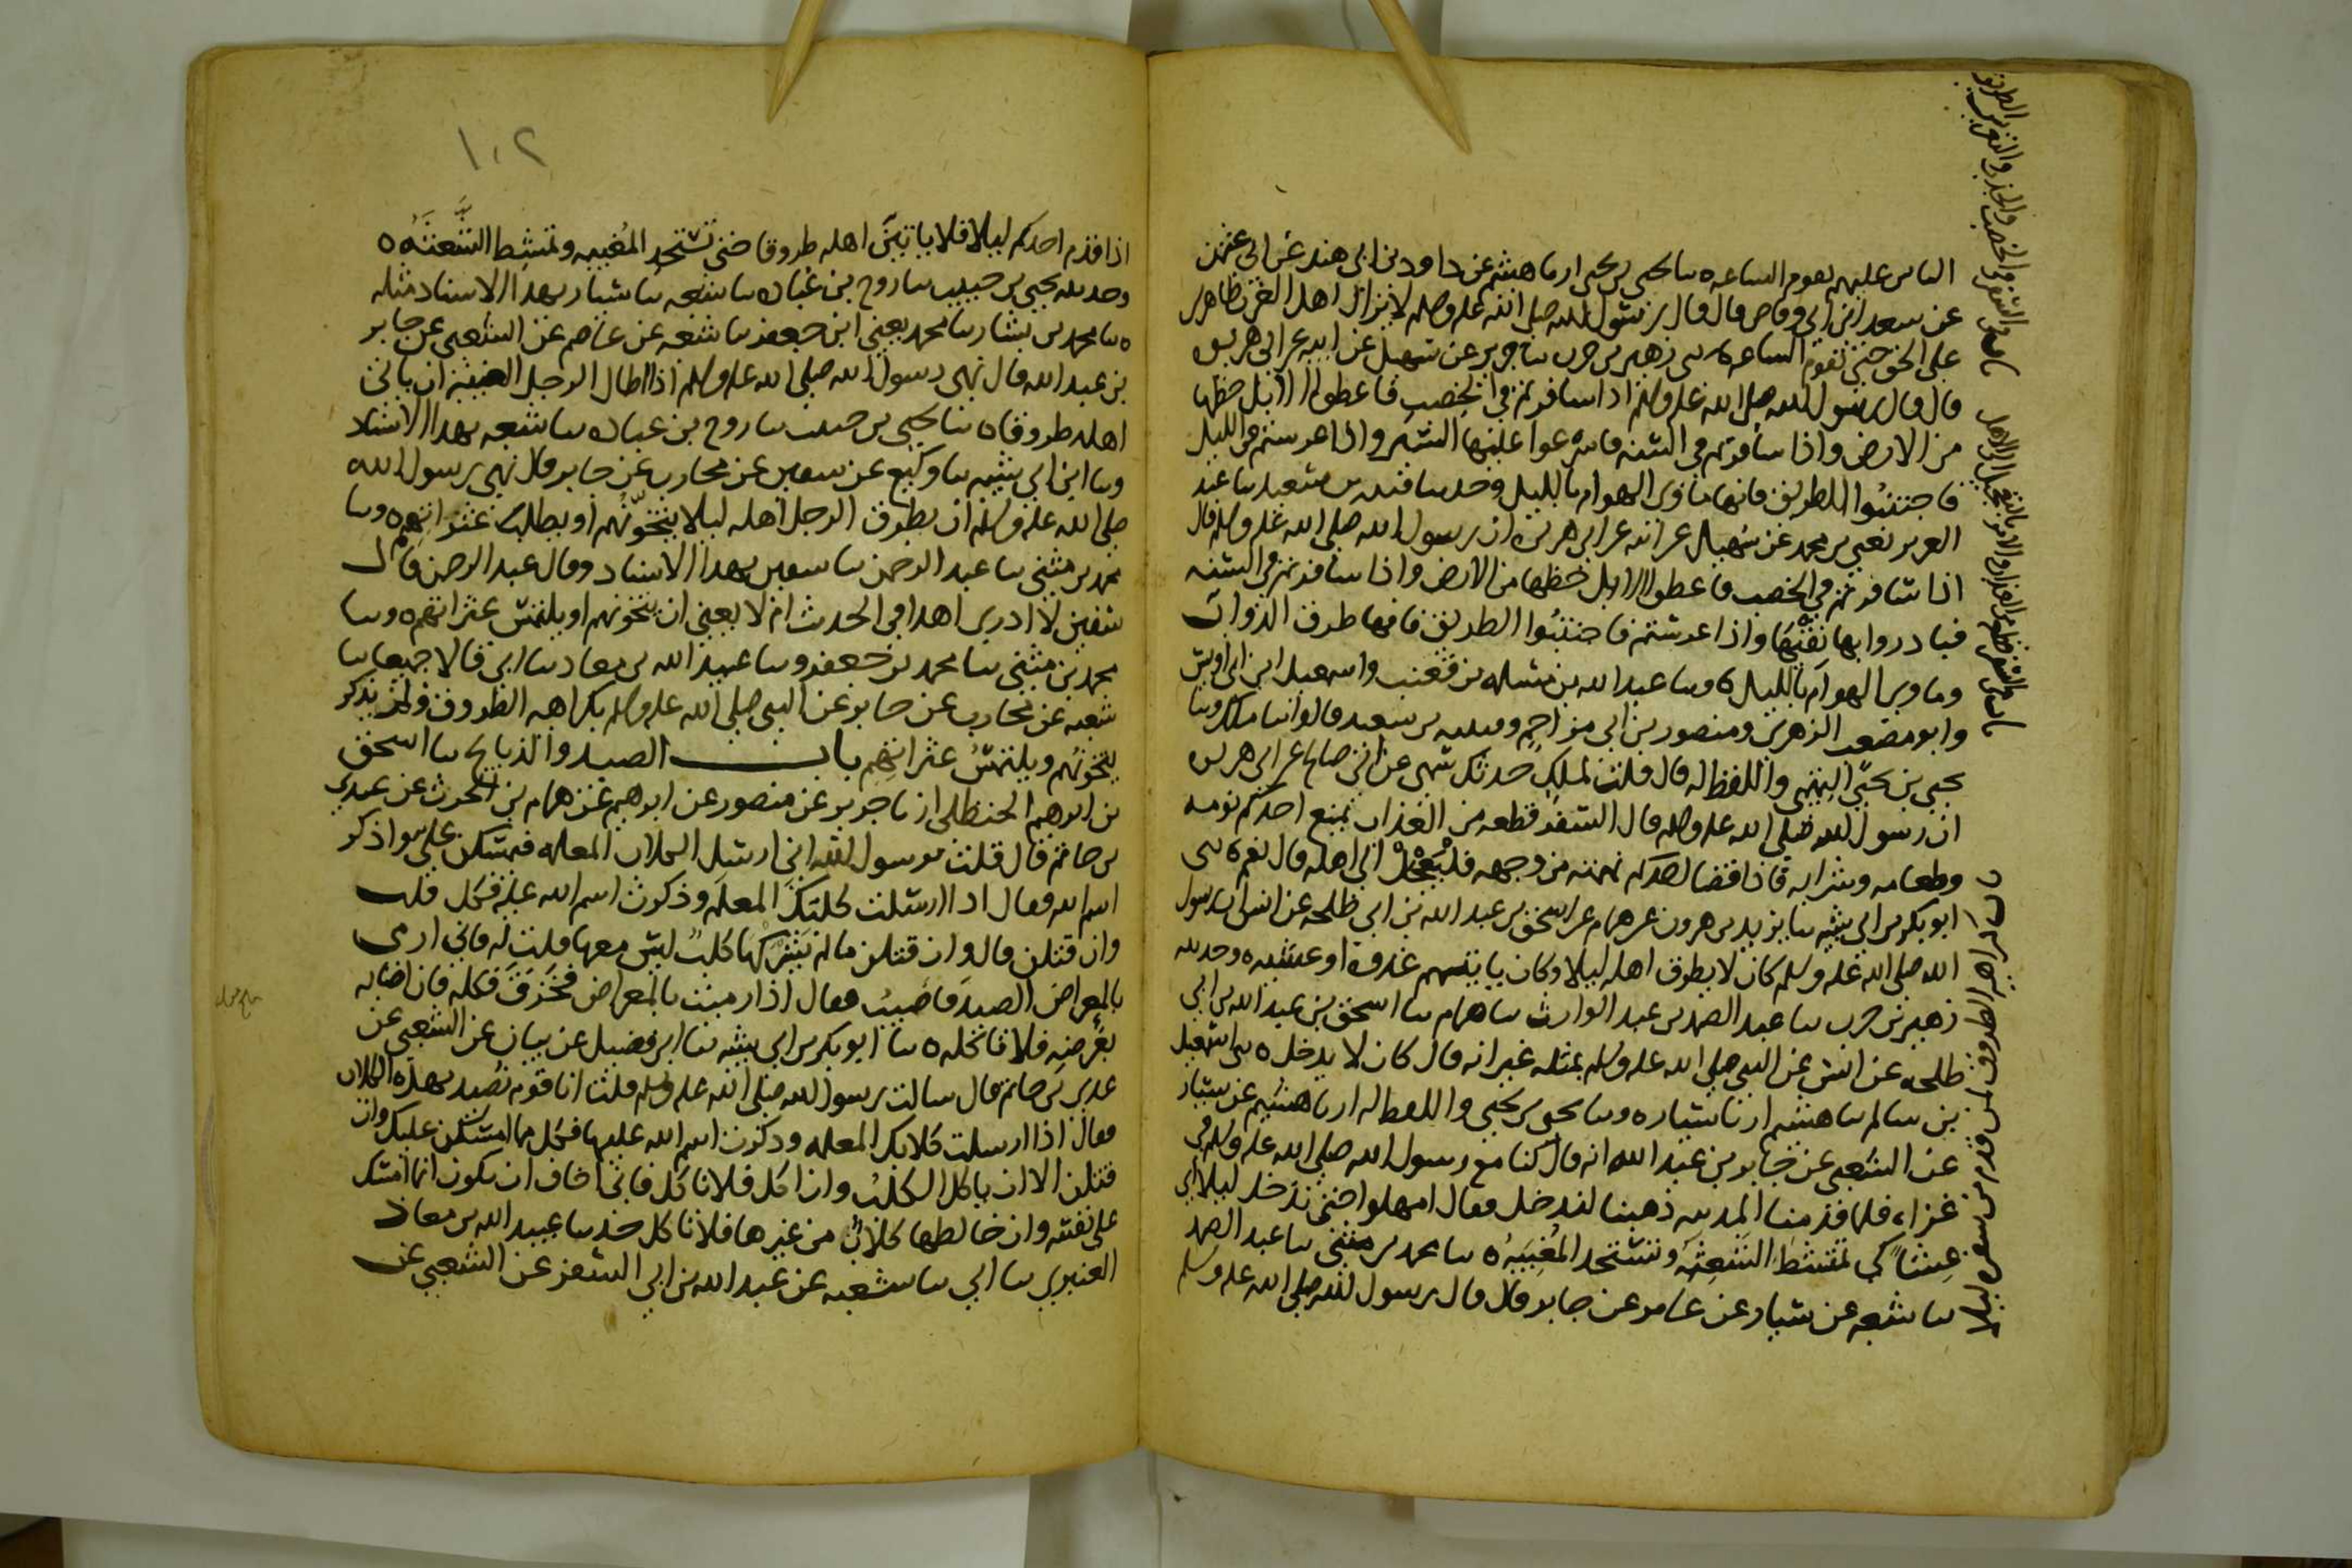 الناس عليهم تقوم الساعه ه نا يحيى بن يحيى انا هشيم عن داود بن ابي هند عن ابي عثمن
عن سعد ابن ابي وقاص قال قال رسول الله صلى الله عليه وسلم لا يزال اهل الغرب ظاهرين
على الحق حتى تقوم الساعه ه نى زهير بن حرب نا جرير عن سهيل عن ابيه عن ابي هريره
قال قال رسول الله صلى الله عليه وسلم اذا سافرتم في الخصب فاعطوا الابل حظها
من الارض واذا سافرتم في السنه فاسرعوا عليها السير واذا عرستم في الليل
فاجتنبوا الطريق فانها ماوى الهوام بالليل وحدثنا قتيبه بن سعيد نا عبد
العزيز يعني بن محمد عن سهيل عن ابيه عن ابي هريره ان رسول الله صلى الله عليه وسلم قال
اذا سافرتم في الخصب فاعطوا الابل حظها من الارض واذا سافرتم في السنه
فبادروا بها نقيها واذا عرستم فاجتنبوا الطريق فانها طرق الدواب
وماوى الهوام بالليل ه ونا عبد الله بن مسلمه بن قعنب واسمعيل ابن ابي اويس
وابو مصعب الزهري ومنصور بن ابي مزاحم وقتيبه بن سعيد قالوا نا ملك ونا
يحيى بن يحيى التميمي واللفظ له قال قلت لملك حدثك سمي عن ابي صالح عن ابي هريره
ان رسول الله صلى الله عليه وسلم قال السفر قطعه من العذاب يمنع احدكم نومه
وطعامه وشرابه فاذا قضا احدكم نهمته من وجهه فليعجل الى اهله قال نعم ه نى
ابو بكر بن ابي شيبه نا يزيد بن هرون عن همام عن اسحق بن عبد الله بن ابي طلحه عن انس ان رسول
الله صلى الله عليه وسلم كان لا يطرق اهله ليلا وكان ياتيهم غدوه او عشيه ه وحدثنيه
زهير بن حرب نا عبد الصمد بن عبد الوارث نا همام نا اسحق بن عبد الله بن ابي
طلحه عن انس عن النبي صلى الله عليه وسلم بمثله غير انه قال كان لا يدخل ه نى اسمعيل
بن سالم نا هشيم انا سيار ه ونا يحيى بن يحيى واللفظ له انا هشيم عن سيار
عن الشعبي عن جابر بن عبد الله انه قال كنا مع رسول الله صلى الله عليه وسلم في
غزاه فلما قدمنا المدينه ذهبنا لندخل فقال امهلوا حتى ندخل ليلا اي
عشاً كي تمتشط الشعثه وتستحد المغيبه ه نا محمد بن مثنى نا عبد الصمد
نا شعبه عن سيار عن عامر عن جابر قال قال رسول الله صلى الله عليه وسلم
باب كراهه الطروق لمن قدم من سفر ليلا
١٠٢
اذا قدم احدكم ليلا فلا ياتين اهله طروقا حتى تستحد المغيبه وتمتشط الشعثه ه
وحدثنيه يحيى بن حبيب نا روح بن عباده نا شعبه نا سيار بهذا الاسناد مثله
ه نا محمد بن بشار نا محمد يعني ابن جعفر نا شعبه عن عاصم عن الشعبي عن جابر
بن عبد الله قال نهى رسول الله صلى الله عليه وسلم اذا اطال الرجل الغيبه ان ياتي
اهله طروقا ه نا يحيى بن حبيب نا روح بن عباده نا شعبه بهذا الاسناد
ونا ابن ابي شيبه نا وكيع عن سفين عن محارب عن جابر قال نهى رسول الله
صلى الله عليه وسلم ان يطرق الرجل اهله ليلا يتخونهم او يطلب عثراتهم ه ونا
محمد بن مثنى نا عبد الرحمن نا سفين بهذا الاسناد وقال عبد الرحمن قال
سفين لا ادري اهذا في الحديث ام لا يعني ان يتخونهم او يلتمس عثراتهم ه ونا
محمد بن مثنى نا محمد بن جعفر ونا عبيد الله بن معاذ نا ابي قالا جميعا نا
شعبه عن محارب عن جابر عن النبي صلى الله عليه وسلم بكراهه الطروق ولم يذكر
يتخونهم ويلتمس عثراتهم باب الصيد والذبائح نا اسحق
بن ابرهيم الحنظلي انا جرير عن منصور عن ابرهيم عن همام بن الحرث عن عدي
بن حاتم قال قلت يرسول الله اني ارسل الكلاب المعلمه فيمسكن علي واذكر
اسم الله فقال اذا ارسلت كلبك المعلم وذكرت اسم الله عليه فكل قلت
وان قتلن قال وان قتلن ما لم يشركها كلب ليس معها قلت له فاني ارمي
بالمعراض الصيد فاصيب فقال اذا رميت بالمعراض فخزق فكله فان اصابه
بعرضه فلا تاكله ه نا ابو بكر بن ابي شيبه نا ابن فضيل عن بيان عن الشعبي عن
عدي بن حاتم قال سالت رسول الله صلى الله عليه وسلم قلت انا قوم نصيد بهذه الكلاب
فقال اذا ارسلت كلابك المعلمه وذكرت اسم الله عليها فكل مما امسكن عليك وان
قتلن الا ان ياكل الكلب وان اكل فلا تاكل فاني اخاف ان يكون انما امسك
على نفسه وان خالطها كلاب من غيرها فلا تاكل حدثنا عبيد الله بن معاذ
العنبري نا ابي نا شعبه عن عبد الله بن ابي السفر عن الشعبي عن